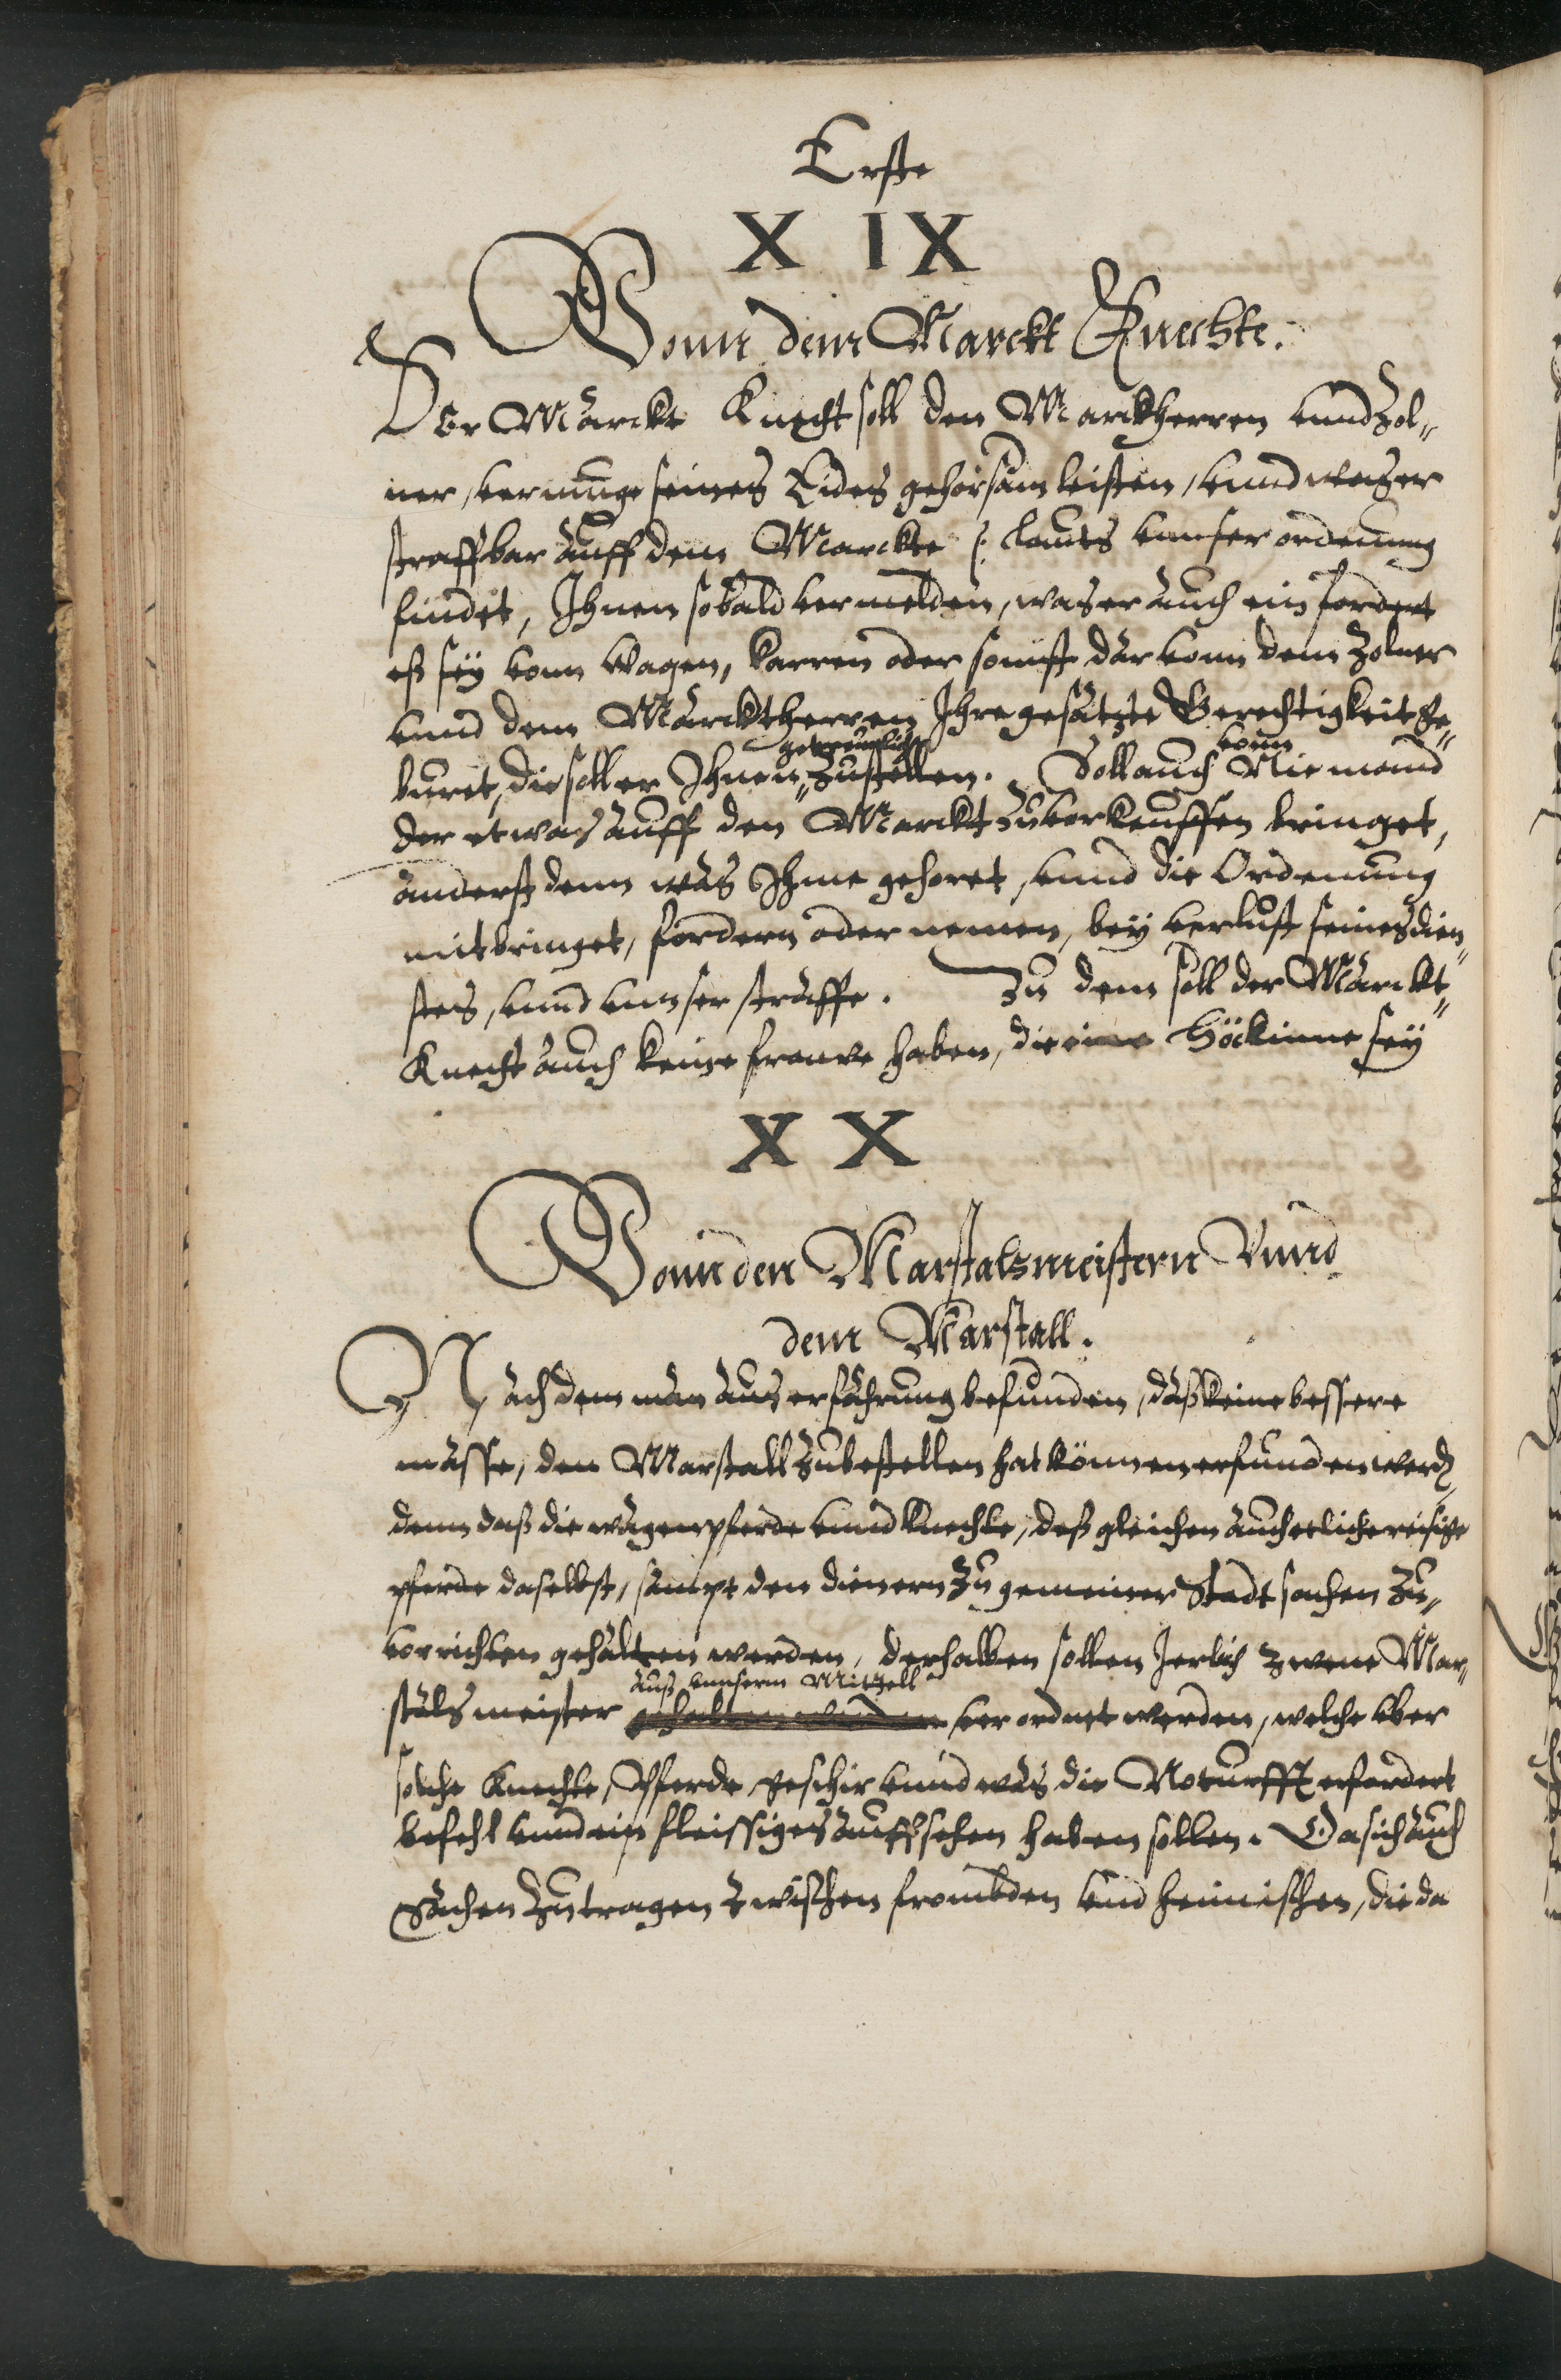 Erste
X IX
Vonn dem Marckt Knechte.
Der Marckt Knecht soll den Marckherren vnnd Zol„
ner, vermuge seines Eides gehorsam leisten, vnnd was er
straffbar auff dem Marckte /: lauts vnnser ordenung
findet, Ihnen sobald vermelden, was er auch ein fordert
eß seÿ vonn Wagen, karren oder sonnst dar vonn dem Zolner
vnnd dem Marcktherren Ihre gesatzte Gerechtigkeit ge„
buret, die soll er Ihnen getreulich„ Zustellen. Soll auch vonn Niemand
der etwas auff den Marckt zuvorkauffen bringet,
anderst denn was Ihme gehoret, vnnd die Ordenung
mitbringet, fordern oder nemen, beÿ verlust seines dien„
stes, vnnd vnnser straffe. Zu dem soll der Marckt„
Knecht auch keine frauwe haben, die eine Höckinne seÿ
X X
Vonn den Marstalsmeistern Vnnd
dem Marstall.
Nach dem man aus erfahrung befunden, daß keine bessere
masse, den Marstall zubestellen hat können erfunden werden
denn daß die wagenpferde vnnd knechte, deß gleichen auch etliche reisige
pferde daselbst, sampt den dienern zu gemeiner Stadt sachen zu„
vorrichten gehalten werden, derhalben sollen Jerlich zwene Mar„
stals meister auß vnnserm Mittell verordnet werden, welche vber
solche Knechte, Pferde, geschir vnnd was die Noturfft erfordert
befehl vnnd ein fleissiges auffsehen haben sollen. Da sich auch
Sachen Zutragen zwischen frombden vnd heimischen, die da